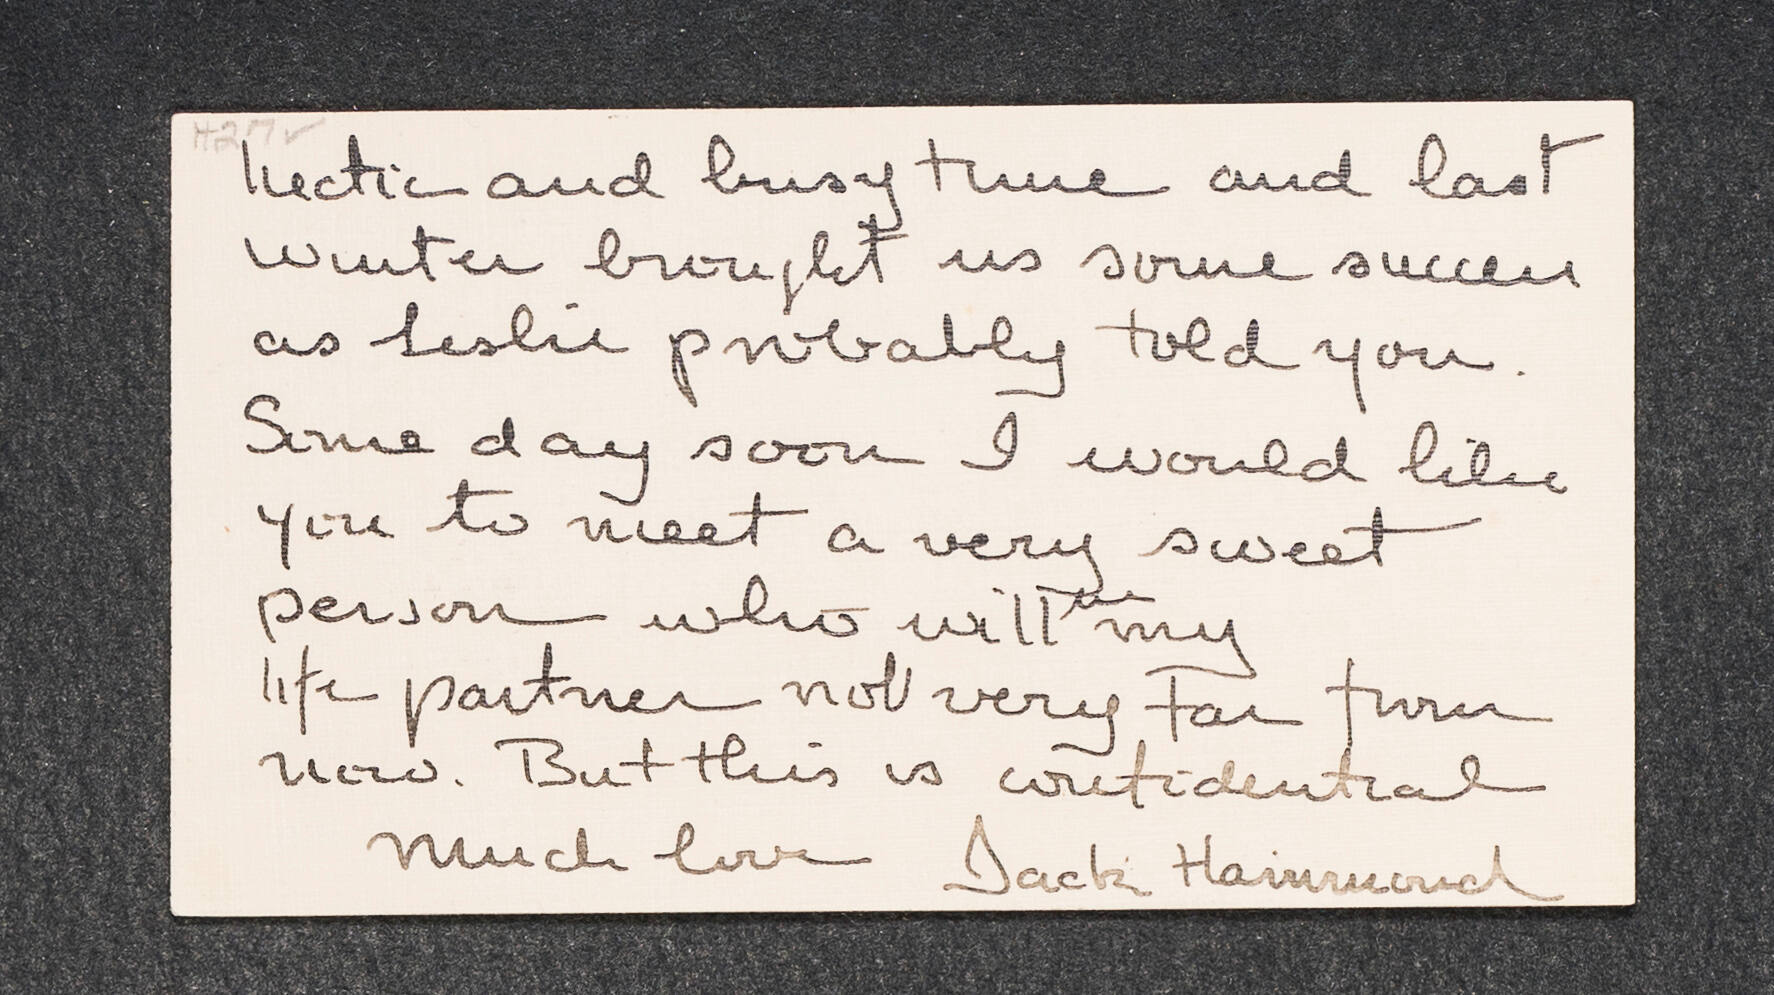 H27V
hectic and busy time and last
winter brought us some success
as Leslie probably told you.
Some day soon I would like
you to meet a very sweet
person who will be my
life partner not very far from
now. But this is confidential
Much love Jack Hammond